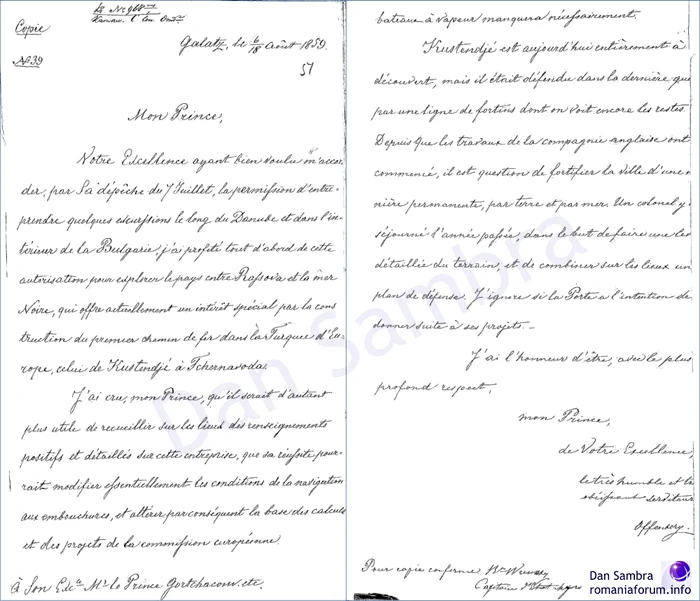 Copie
Nº 39
Galatz, le 6/18 Août 1859.
51
Mon Prince,
Votre Excellence ayant bien voulu m'accor-
der, par Sa dépêche du 7 Juillet, la permission d'entre-
prendre quelques excursions le long du Danube et dans l'in-
térieur de la Bulgarie, j'ai profité tout d'abord de cette
autorisation pour explorer le pays entre Rassova et la mer
Noire, qui offre actuellement un intérêt spécial par la cons
truction du premier chemin de fer dans la Turquie d'Eu-
rope, celui de Kustendjé à Tchernavoda.
J'ai cru, mon Prince, qu'il serait d'autant
plus utile de recueillir sur les lieux des renseignements
positifs et détaillés sur cette entreprise, que sa réussite pour-
rait modifier essentiellement les conditions de la navigation
aux embouchures, et altérer par conséquent la base des calculs
et des projets de la commission européenne.
à Son Exce Mr le Prince Gortchacow, etc.
bateaux à vapeur manquera nécessairement.
Kustendjé est aujourd'hui entièrement à
découvert, mais il était défendu dans la dernière gue
par une ligne de fortins dont on voit encore les restes.
Depuis que les travaux de la compagnie anglaise ont
commencé, il est question de fortifier la ville d'une
nière permanente, par terre et par mer. Un colonel y
séjourné l'année passée, dans le but de faire une le
détaillée du terrain, et de combiner sur les lieux un
plan de défense. J'ignore si la Porte a l'intention de
donner suite à ses projets. –
J'ai l'honneur d'être, avec le plus
profond respect,
mon Prince,
de Votre Excellence,
le très humble et
obéissant serviteur
Offenberg.
Pour copie conforme
Capitaine
Dan Sambra
Dan Sambra
romaniaforum.info